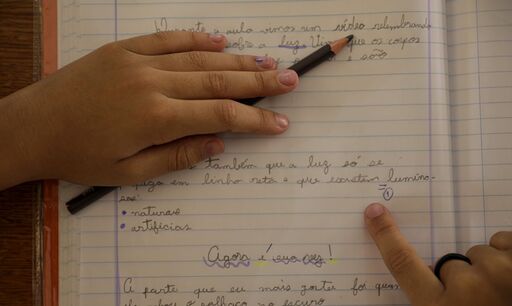 Durante a aula vimos um vídeo relembrando
sobre a luz. Vimos que os corpos
e são
também que a luz só se
propaga em linha reta e que existem lumino-
sos
1
• naturais
• artificias
Agora é sua vez!
A parte que eu mais gostei foi quan-
no escuro